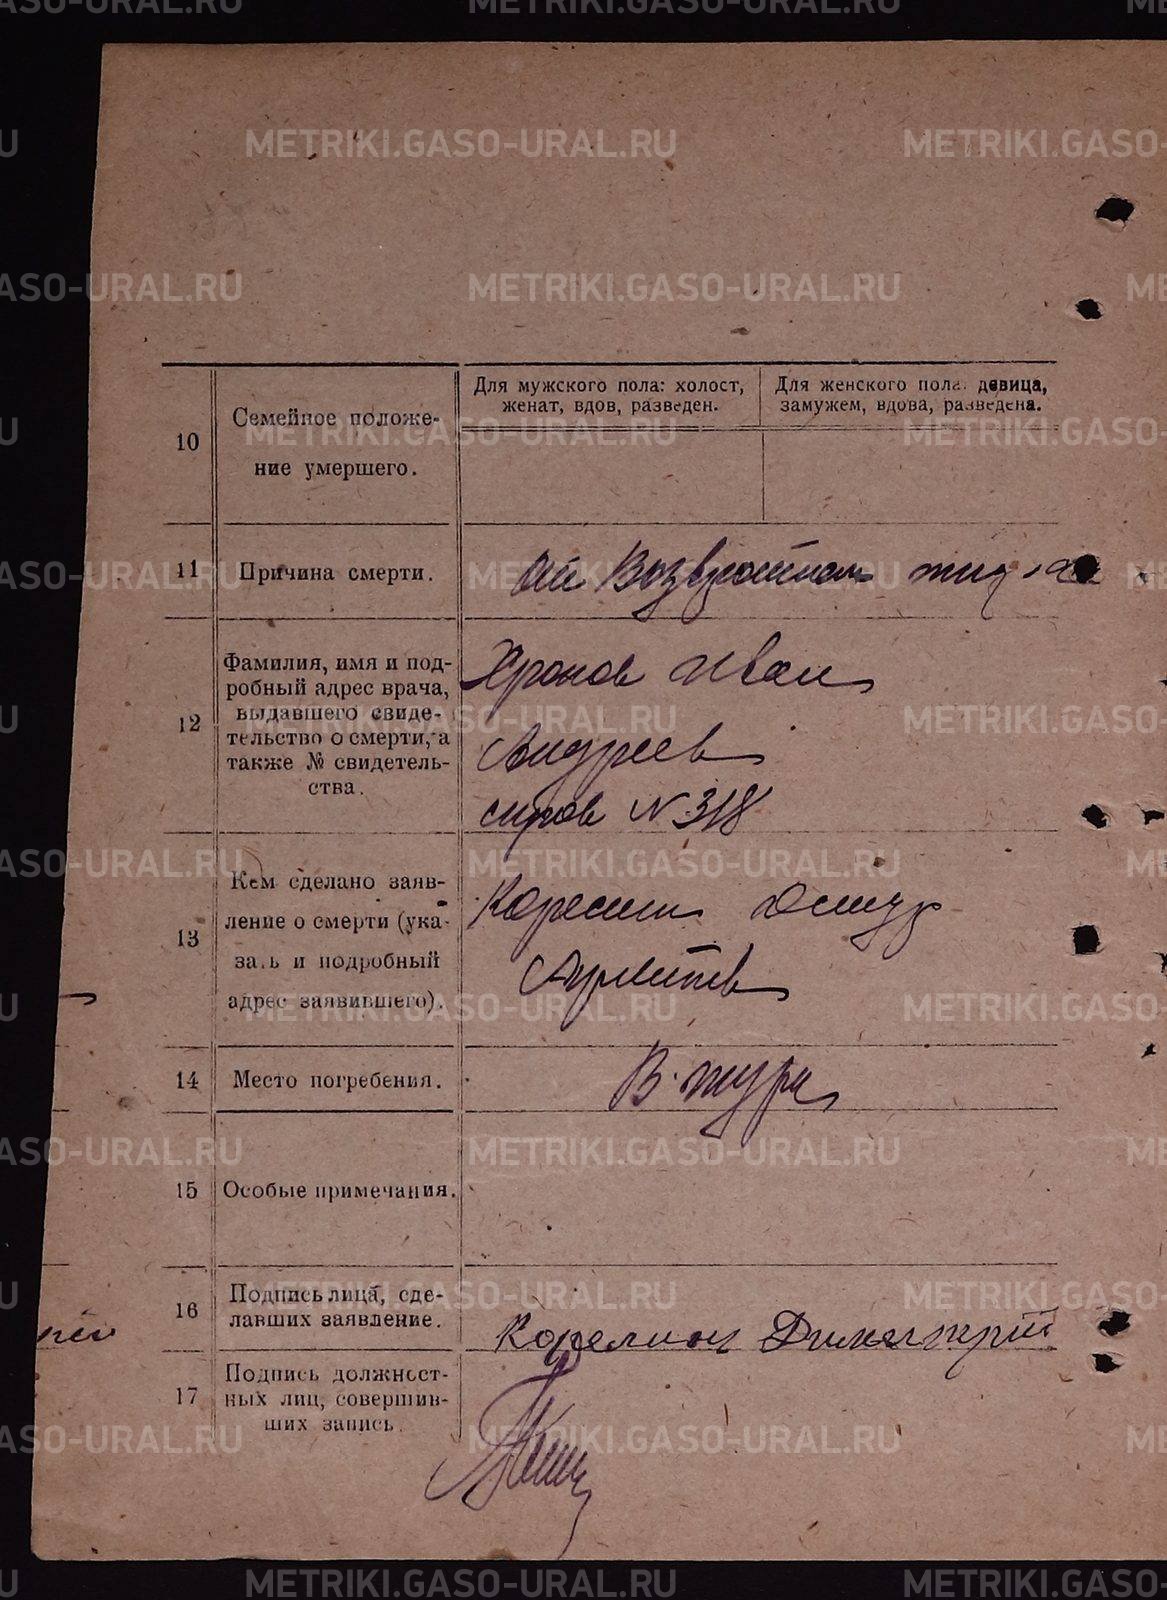 METRIKI.GASO-URAL.RU
Для мужского пола: холост,
женат, вдов, разведен.
Для женского пола: девица,
замужем, вдова, разведена.
10
Семейное положе-
ние умершего.
11
Причина смерти.
От Возвратнаго тифа
12
Фамилия, имя и под-
робный адрес врача,
выдавшего свиде-
тельство о смерти, а
также № свидетель-
ства.
Хронов Иван
Андреев
справ N 318
13
Кем сделано заяв-
ление о смерти (ука-
зать и подробный
адрес заявившего).
Корелин
14
Место погребения.
В. тура
15
Особые примечания.
16
Подпись лица, сде-
лавших заявление.
Корелин Димитрий
17
Подпись должност-
ных лиц, совершив-
ших запись.